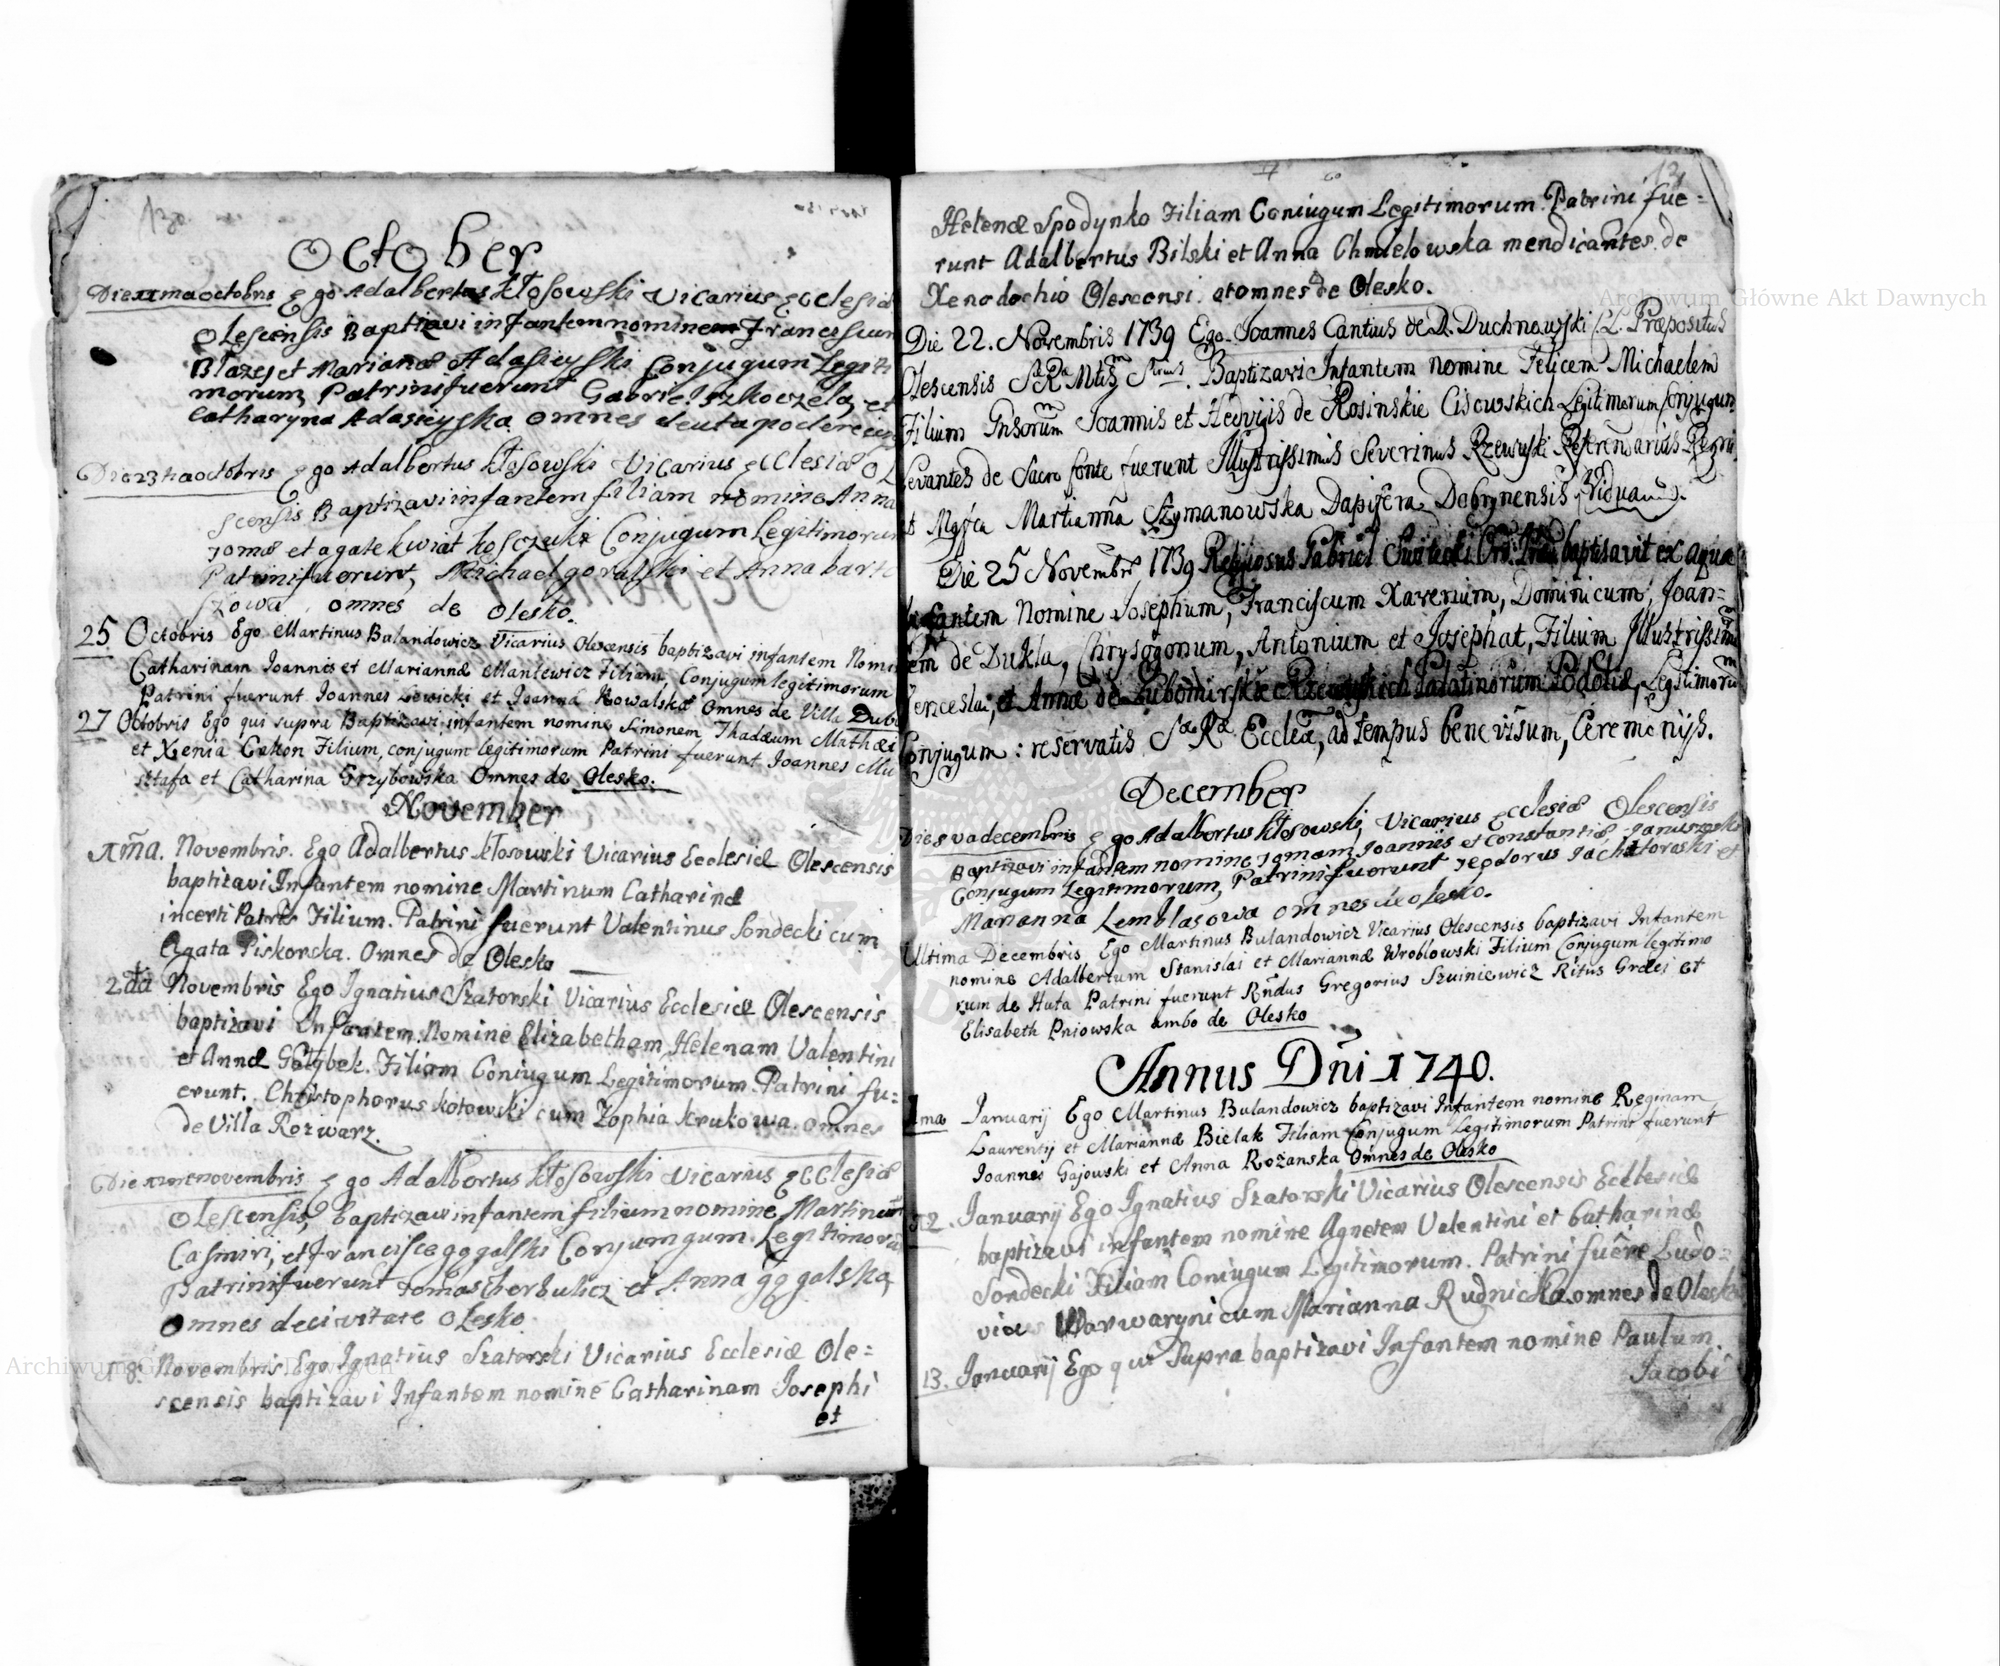 130
October
Die 11ma octobris Ego Adalbertus Kłosowski Vicarius Ecclesiæ
Olescensis Baptizavi infantem nominem Francissum
Blazej et Marianæ Adasieyski Conjugum Legiti
morum, Patrini fuerunt Gabriel Szkoczela, et
Catharyna Adasieyska omnes de
Die 23tia octobris Ego Adalbertus Kłosowski Vicarius Ecclesiæ Ol
scensis Baptizavi infantem filiam nomine Anna
Tomæ et agate kwiat Conjugum Legitimorum
Patrini fuerunt, Michael goralski et Anna bart
szowa, omnes de Olesko.
25 Octobris Ego Martinus Bulandowicz Vicarius Olescensis baptizavi infantem Nomi
Catharinam Joannis et Mariannæ Mantewicz Filiam, Conjugum legitimorum
Patrini fuerunt Joannes Lewicki et Joanna Kowalska Omnes de Villa Dubi
27 Octobris Ego qui supra Baptizavi infantem nomine Simonem Thadæum Mathæi
et Xenia Cakon Filium, conjugum legitimorum Patrini fuerunt Joannes Mu
sztafa et Catharina Grzybowska Omnes de Olesko.
November
11ma. Novembris. Ego Adalbertus Kłosowski Vicarius Ecclesiæ Olescensis
baptizavi Infantem nomine Martinum Catharinæ
incerti Patris Filium. Patrini fuerunt Valentinus Sondecki cum
Agata Piskorska. Omnes de Olesko
2da Novembris Ego Ignatius Szatorski Vicarius Ecclesiæ Olescensis
baptizavi Infantem Nomine Elizabetham, Helenam Valentini
et Annæ Gołybek. Filiam Coniugum Legitimorum. Patrini fu=
erunt. Christophorus Kotowski cum Zophia Krukowa. omnes
de Villa Rozwarz.
Die novembris Ego Adalbertus Kłosowski Vicarius Ecclesiæ
Olescensis, Baptizavi infantem filium nomine Martinum
Casmiri, et Francisce gggalski Conjumgum Legitimoru
Patrini fuerunt Tomas et Anna gggalska,
Omnes de civitate Olesko.
18. Novembris Ego Ignatius Szatorski Vicarius Ecclesiæ Ole=
scensis baptizavi Infantem nomine Catharinam Josephi
et
131
Helenæ Spodynko Filiam Coniugum Legitimorum. Patrini fue=
runt Adalbertus Bilski et Anna Chmielowska mendicantes. de
Xenodochio Olescensi. atomnes de Olesko.
Die 22. Novembris 1739 Ego Joannes Cantius de D. Duchnowski Præpositus
Olescensis Baptizavi Infantem Nomine Felicem Michaelem
Filium Joannis et Hedvijis de Rosinskie Cisowskich Legitimorum Conjugum
Levantes de Sacro fonte fuerunt Illustrissimus Severinus Rzewuski Referendarius Regni
et Mgfca Marianna Szymanowska Dapifera Dobrynensis (Vidua).
Die 25 Novembr 1739 Religiosus Gabriel baptisavit ex aqua
Infantem Nomine Josephum, Franciscum Xaverium, Dominicum, Joan=
nem de Dukla, Chrysogonum, Antonium et Josephat, Filium Illustrissimorum
Venceslai, et Annæ de Lubomirskie Rzewuskich Palatinorum Podoliæ, Legitimorum
Conjugum: reservatis Sæ Ræ Ecclæ, ad tempus bene visum, Ceremonijs.
December
Die 5va decembris Ego Adalbertus Kłosowski, Vicarius Ecclesiæ Olescensis
Baptizavi infantem nomine Tomam, Joannis et Constantiæ
Conjugum Legitimorum, Patrini fuerunt Teodorus et
Marianna Lemblasowa omnes de Olesko.
Ultima Decembris Ego Martinus Bulandowicz Vicarius Olescensis baptizavi Infantem
nomine Adalbertum Stanislai et Mariannæ Wroblowski Filium Conjugum legitimo
rum de Huta Patrini fuerunt Rndus Gregorius Szuiniewicz Ritus Græci et
Elisabeth Pniowska ambo de Olesko
Annus Dni 1740.
1ma Januarij Ego Martinus Bulandowicz baptizavi Infantem nomine Reginam
Laurentij et Mariannæ Bielak Filiam Conjugum Legitimorum Patrini fuerunt
Joannes Gajowski et Anna Rożanska Omnes de Olesko
12. Januarij Ego Ignatius Szatorski Vicarius Olescensis Ecclesiæ
baptizavi infantem nomine Agnetem Valentini et Catharinæ
Sondecki Filiam Coniugum Legitimorum. Patrini fuêre Ludo=
vicus Warwaryni cum Marianna Rudnicka omnes de Olesko
13. Januarij Ego qui Supra baptizavi Infantem nomine Paulum.
Jacobi
Archiwum Główne Akt Dawnych
Archiwum Główne Akt Dawnych